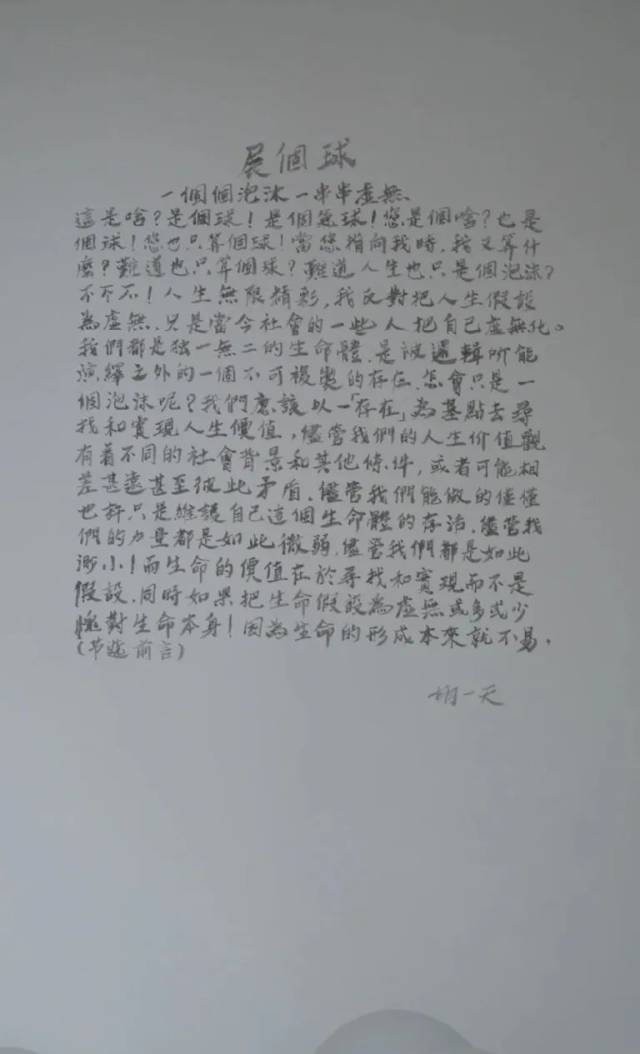 展個球
一個個泡沫 一串串虛無、
這是啥？是個球！是個氣球！您是個啥？也是
個球！您也只算個球！當您指向我時，我又算什
麼？難道也只算個球？難道人生也只是個泡沫？
不不不！人生無限精彩，我反對把人生假設
為虛無．只是當今社會的一些人把自己虛無化。
我們都是独一無二的生命體．是被邏輯所能
演繹之外的一個不可複製的存在．怎會只是一
個泡沫呢？我們應該以一「存在」為基點去尋
找和實現人生價值，儘管我們的人生价值觀
有着不同的社會背景和其他條件，或者可能相
差甚遠甚至彼此矛盾．儘管我們能做的僅僅
也許只是維護自己這個生命體的存活．儘管我
們的力量都是如此微弱．儘管我們都是如此
渺小！而生命的價值在於尋找和實現而不是
假設．同時如果把生命假設為虛無或多或少
愧對生命本身！因為生命的形成本來就不易．
（节选前言）
胡一天